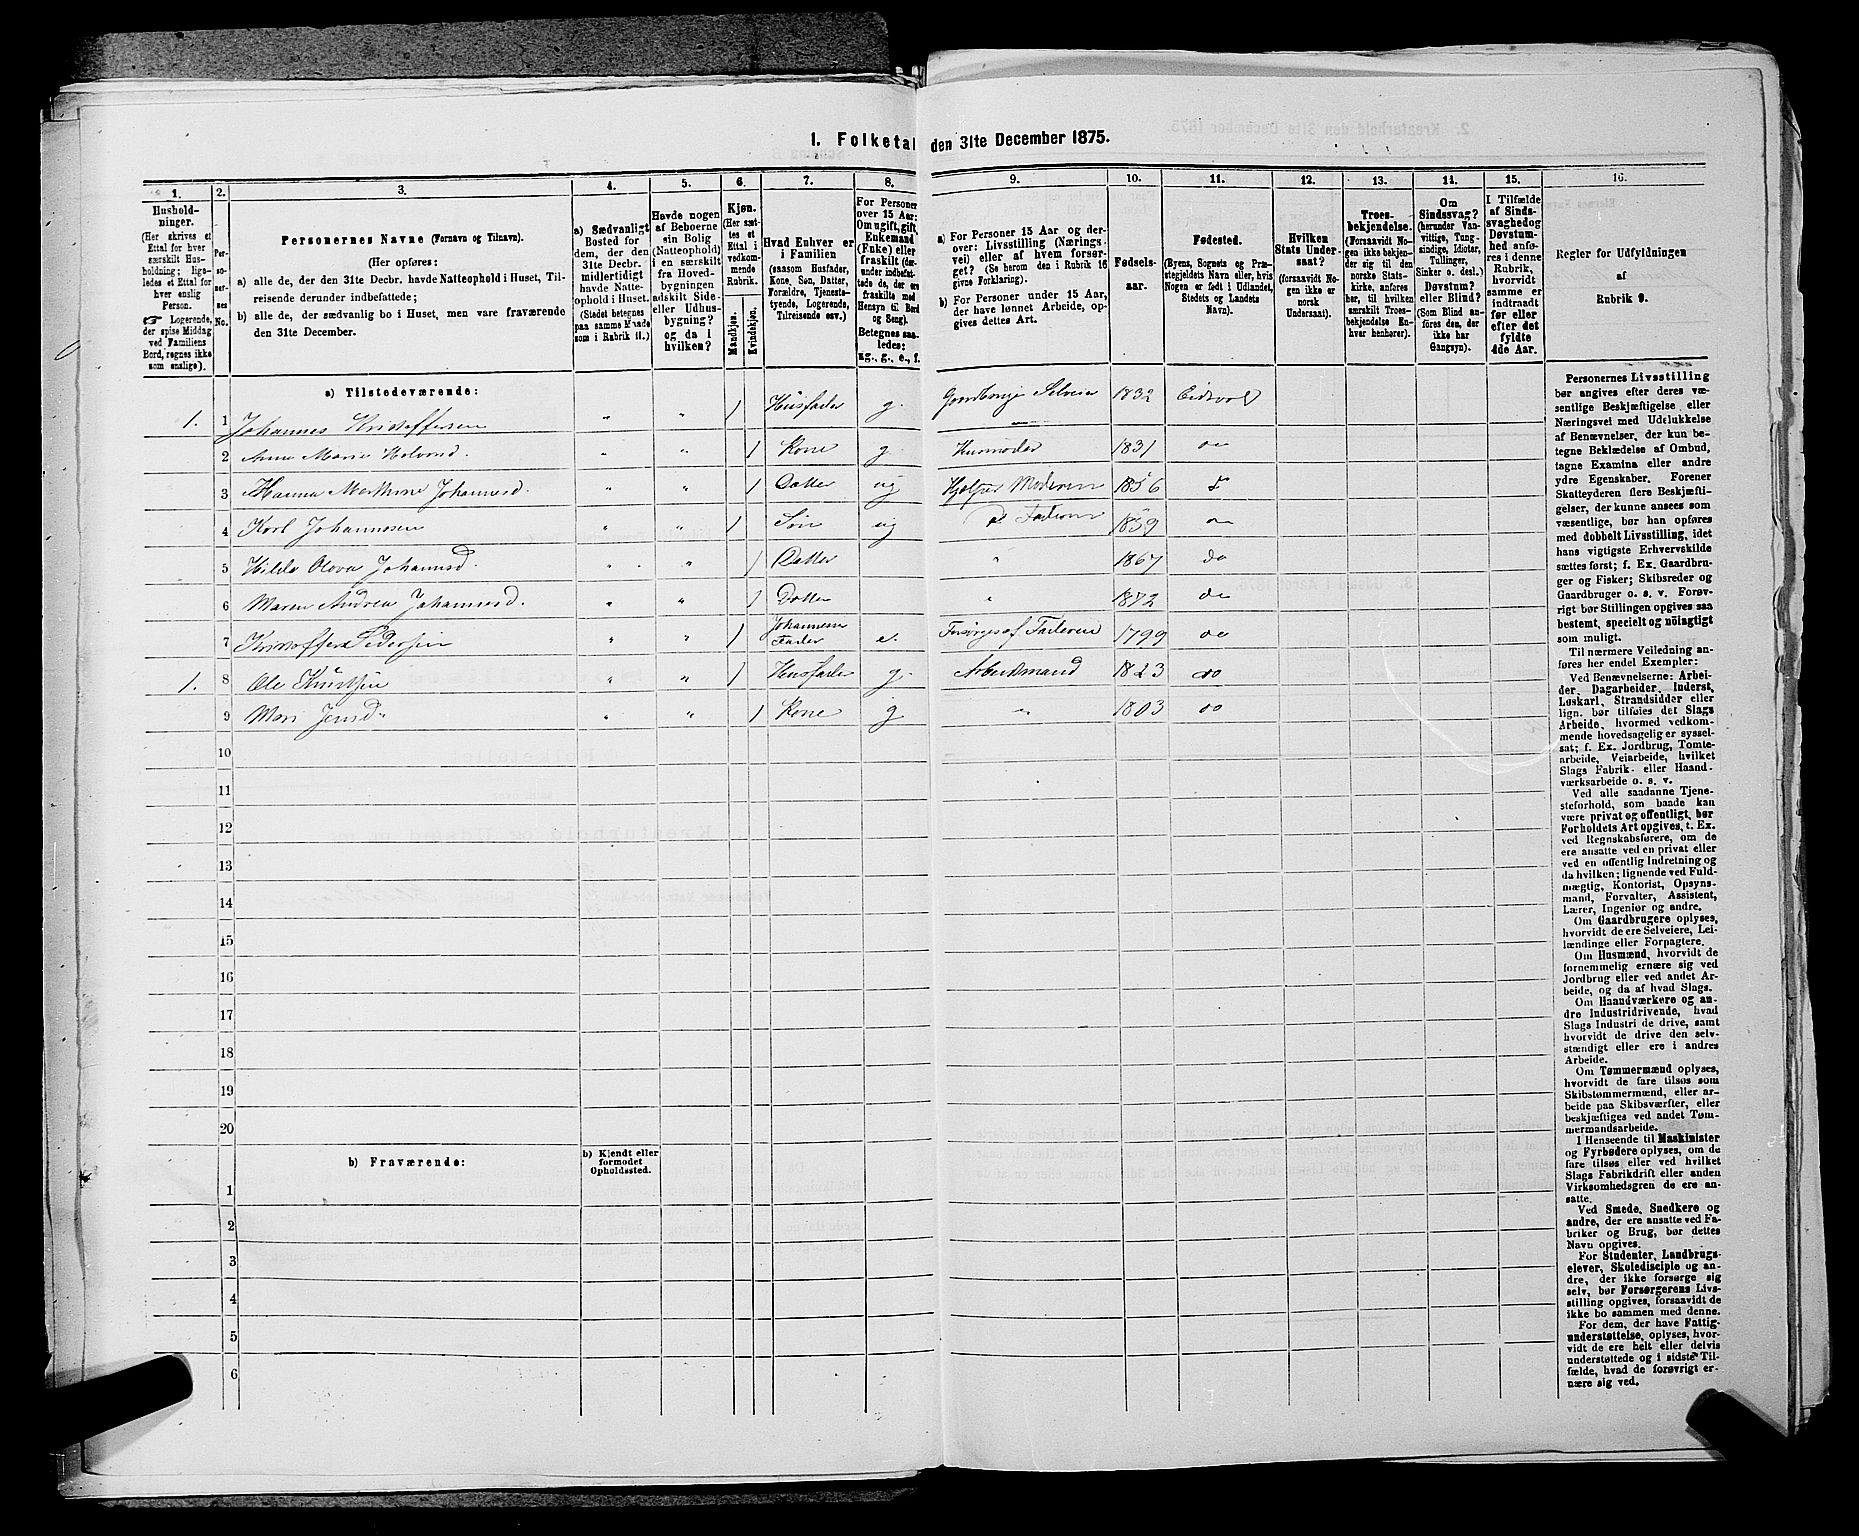 1. Folketal den 31te December 1875.
1. 2. 3. 4. 5. 6. 7. 8. 9. 10. 11. 12. 13. 14. 15. 16.
Husholdninger.
(Her skrives et
Ettal for hver
særskilt Husholdning;
ligeledes et Ettal for
hver enslig
Person.
☞ Logerende,
der spise Middag
ved Familiens
Bord, regnes ikke
som enslige).
Personernes No.
Personernes Navne (Fornavn og Tilnavn).
(Her opføres:
a) alle de, der den 31te Decbr. havde Natteophold i Huset, Tilreisende derunder indbefattede;
b) alle de, der sædvanlig bo i Huset, men vare fraværende
den 31te December.
a) Sædvanligt
Bosted for
dem, der den
31te Decbr.
midlertidigt
havde Natteophold i Huset.
(Stedet betegnes
paa samme Maade
som i Rubrik 11.)
Havde nogen
af Beboerne
sin Bolig
(Natteophold)
i en særskilt
fra Hovedbygningen
adskilt Side-
eller Udhusbygning?
og da i
hvilken?
Kjøn.
(Her sættes et
Ettal i
vedkommende
Rubrik.
Mandkjøn.
Kvindekjøn.
Hvad Enhver er
i Familien
(saasom Husfader,
Kone, Søn, Datter,
Forældre, Tjenestetyende, Logerende,
Tilreisende osv.)
For Personer
over 15 Aar:
Om ugift, gift,
Enkemand
(Enke) eller
fraskilt (derunder indbefattede de, der ere
fraskilte med
Hensyn til Bord
og Seng).
Betegnes saaledes:
ug., g., e., f.
a) For Personer 15 Aar og derover: Livsstilling (Næringsvei) eller af hvem forsørget? (Se herom den i Rubrik 16
givne Forklaring.)
b) For Personer under 15 Aar,
der have lønnet Arbeide, opgives dettes Art.
Fødselsaar.
Fødested.
(Byens, Sognets og Præstegjeldets Navn eller, hvis
Nogen er født i Udlandet,
Stedets og Landets
Navn).
Hvilken
Stats Undersaat?
(forsaavidt Nogen ikke er
norsk
Undersaat).
Troesbekjendelse.
(Forsaavidt Nogen ikke bekjender sig til den
norske Statskirke, anføres
her, til hvilken
særskilt Troesbekjendelse Enhver henhører).
Om
Sindssvag?
(herunder Vanvittige, Tungsindige, Idioter,
Tullinger,
Sinker o. desl.)
Døvstum?
eller Blind?
(Som Blind anføres den, der
ikke har
Gangsyn).
I Tilfælde
af Sindssvaghed og
Døvstumhed anføres i denne
Rubrik,
hvorvidt
samme er
indtraadt
før eller
efter det
fyldte
4de Aar.
Regler for Udfyldningen
af
Rubrik 9.
a) Tilstedeværende:
1. 1 Johannes Kristoffersen " " 1 Husfader g. Gaardbruger Selveier 1832 Eidsvol
2 Anna Marie Halvorsd. " " 1 Kone g. Husmoder 1831 do
3 Hanna Mathine Johannesd " " 1 Datter ug Hjelper Moderen 1856
4 Karl Johannesen " " 1 Søn ug do Faderen 1859 do
5 Hilda Olava Johannesd. " " 1 Datter " 1867 do
6 Maren Andrea Johannesd. " " 1 Datter " 1872 do
7 Kristoffer Pedersen " " 1 Johannesens Fader e. Forsørges af 1799 do
1. 8 Ole " " 1 Husfader g. Arbeidsmand 1823 do
9 Mari Jensd. " " 1 Kone g " 1803 do
10
11
12
13
14
15
16
17
18
19
20
b) Fraværende:
b) Kjendt eller
formodet
Opholdssted.
1
2
3
4
5
6
Personernes Livsstilling
bør angives efter deres væsentlige Beskjæftigelse eller
Næringsvei med Udelukkelse
af Benævnelser, der kun betegne Beklædelse af Ombud,
tagne Examina eller andre
ydre Egenskaber. Forener
Skatteyderen flere Beskjæftigelser, der kunne ansees som
væsentlige, bør han opføres
med dobbelt Livsstilling, idet
hans vigtigste Erhvervskilde
sættes først; f. Ex. Gaardbruger og Fisker; Skibsreder og
Gaardbruger o. s. v. Forøvrigt bør Stillingen opgives saa
bestemt, specielt og nöiagtigt
som muligt.
Til nærmere Veiledning anføres her endel Exempler:
Ved Benævnelserne: Arbeider, Dagarbeider, Inderst,
Løskarl, Strandsidder eller
lign. bør tilføies det Slags
Arbeide, hvormed vedkommende hovedsagelig er sysselsat; f. Ex. Jordbrug, Tomtearbeide, Veiarbeide, hvilket
Slags Fabrik- eller Haandværksarbeide o. s. v.
Ved alle saadanne Tjenesteforhold, som baade kan
være privat og offentligt, bør
Forholdets Art opgives, t. Ex.
ved Regnskabsførere, om de
ere ansatte ved en privat eller
ved en offentlig Indretning og
da hvilken; lignende ved Fuldmægtig, Kontorist, Opsynsmand, Forvalter, Assistent,
Lærer, Ingeniør og andre.
Om Gaardbrugere oplyses,
hvorvidt de ere Selveiere, Leilændinge eller Forpagtere.
Om Husmænd, hvorvidt de
fornemmelig ernære sig ved
Jordbrug eller ved andet Arbeide, og da af hvad Slags.
Om Haandværkere og andre Industridrivende, hvad
Slags Industri de drive, samt
hvorvidt de drive den selvstændigt eller ere i andres
Arbeide.
Om Tømmermænd oplyses,
hvorvidt de fare tilsøs som
Skibstømmermænd, eller arbeide paa Skibsværfter, eller
beskjæftiges ved andet Tømmermandsarbeide.
I Henseende til Maskinister
og Fyrbødere oplyses, om de
fare tilsøs eller ved hvilket
Slags Fabrikdrift eller anden
Virksomhedsgren de ere ansatte.
Ved Smede, Snedkere og
andre, der ere ansatte ved Fabriker og Brug, bør dettes
Navn opgives.
For Studenter, Landbrugselever, Skoledisciple og andre, der ikke forsørge sig
selv, bør Forsørgerens Livsstilling opgives, forsaavidt de
ikke bo sammen med denne.
For dem, der have Fattigunderstøttelse, oplyses, hvorvidt de ere helt eller delvis
understøttede og i sidste Tilfælde, hvad de forøvrigt ernære sig ved.